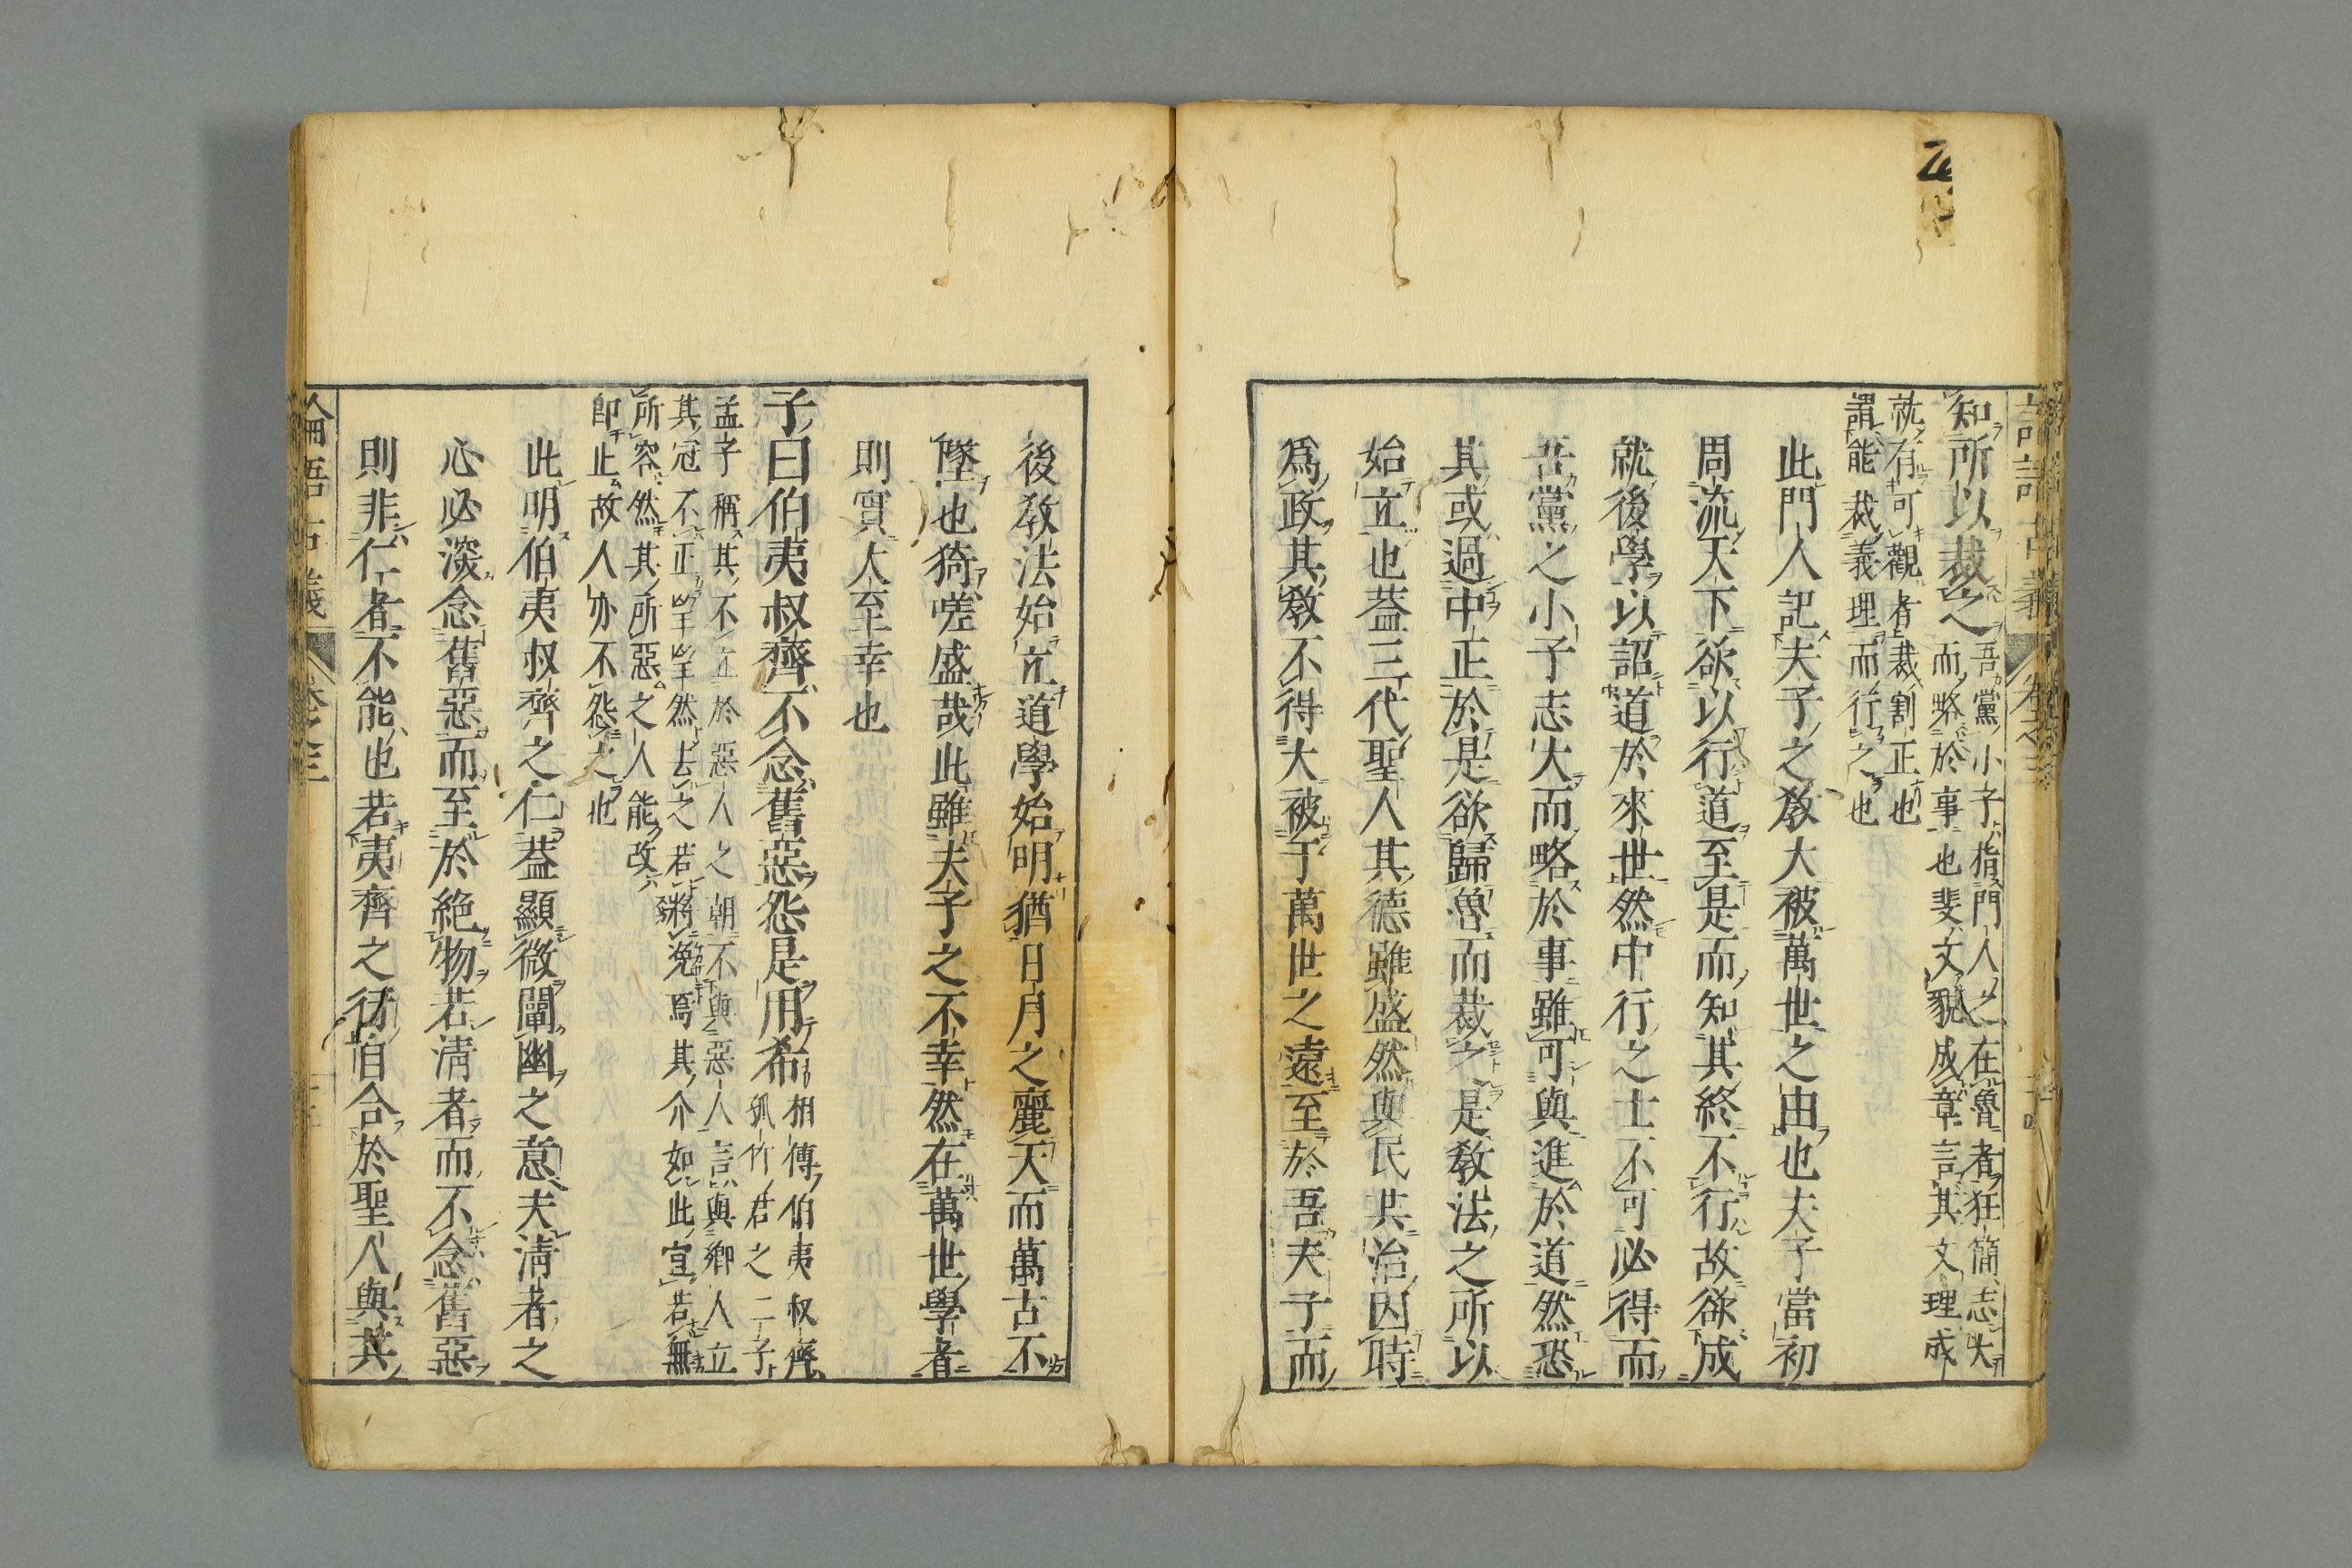 知所以裁之
吾黨小子指門人之在魯者狂簡志大
而略於事也斐文貌成章言其文理成
就有可觀者裁割正也
謂能裁義理而行之也
此門人記夫子之敎大被萬世之由也夫子當初
周流天下欲以行道至是而知其終不行故欲成
就後學以詔道於來世然中行之士不可必得而
吾黨之小子志大而略於事雖可與進於道然恐
其或過中正於是欲歸魯而裁之是敎法之所以
始立也蓋三代聖人其德雖盛然與民共治因時
爲政其敎不得大被于萬世之遠至於吾夫子而
後敎法始立道學始明猶日月之麗天而萬古不
墜也猗嗟盛哉此雖夫子之不幸然在萬世學者
則實大至幸也
子曰伯夷叔齊不念舊惡怨是用希
相傳伯夷叔齊
孤竹君之二子
孟子稱其不立於惡人之朝不與惡人言與鄉人立
其冠不正望望然去之若將浼焉其介如此宜若無
所容然其所惡之人能改
即止故人亦不怨之也
此明伯夷叔齊之仁蓋顯微闡幽之意夫淸者之
心必深念舊惡而至於絕物若淸者而不念舊惡
則非仁者不能也若夷齊之行伯合於聖人與其
論語古義 卷之三